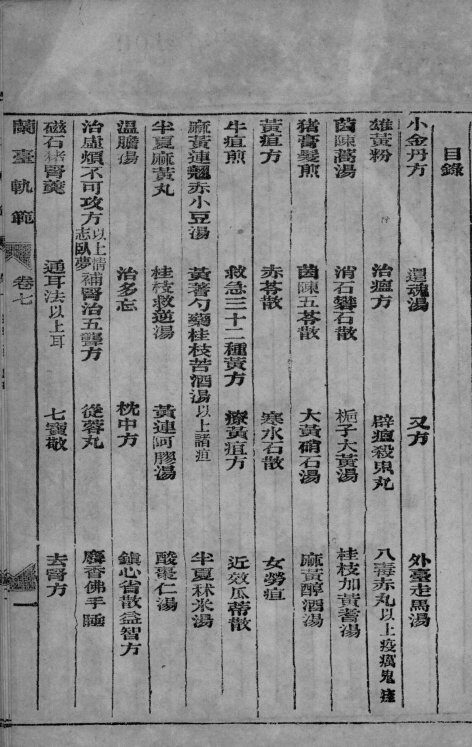 目錄
小金丹方 還魂湯 又方 外臺走馬湯
雄黃粉 治瘧方 辟瘟殺鬼丸 八毒赤丸以上疫癘鬼疰
茵陳蒿湯 消石礬石散 梔子大黃湯 桂枝加黃耆湯
猪膏髮煎 茵陳五苓散 大黃硝石湯 麻黃醇酒湯
黃疸方 赤苓散 寒水石散 女勞疸
牛疸煎 救急三十二種黃方 療黃疸方 近效瓜蒂散
麻黃連翹赤小豆湯 黃耆勺藥桂枝苦酒湯以上諸疸
半夏麻黃丸 桂枝救逆湯 黃連阿膠湯 半夏秫米湯
溫膽湯 治多忘 枕中方 酸棗仁湯
治虛煩不可攻方以上情志臥夢 補腎治五聾方 從蓉丸 鎮心省散益智方
磁石猪腎羹 通耳法以上耳 七寶散 麝香佛手睡
去腎方
蘭臺軌範 卷七 一